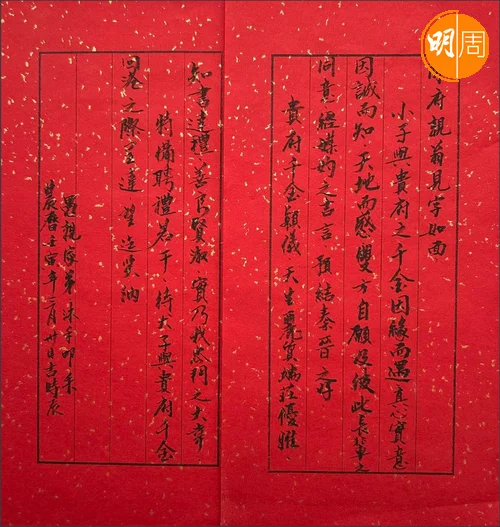 府親翁見字如面
小子與貴府之千金因緣而遇真心實意
因誠而知天地而感雙方自願及彼此長輩之
同意經媒妁之吉言預結秦晉之好
貴府千金穎儀天生麗質端莊優雅、
知書達禮、善良賢淑、實乃我忠門之大幸
特備聘禮若干、待犬子與貴府千金
回港之際呈達望迄笑納
愚親 弟 沐手叩柬
農曆壬寅年二月廿日吉時辰
明周